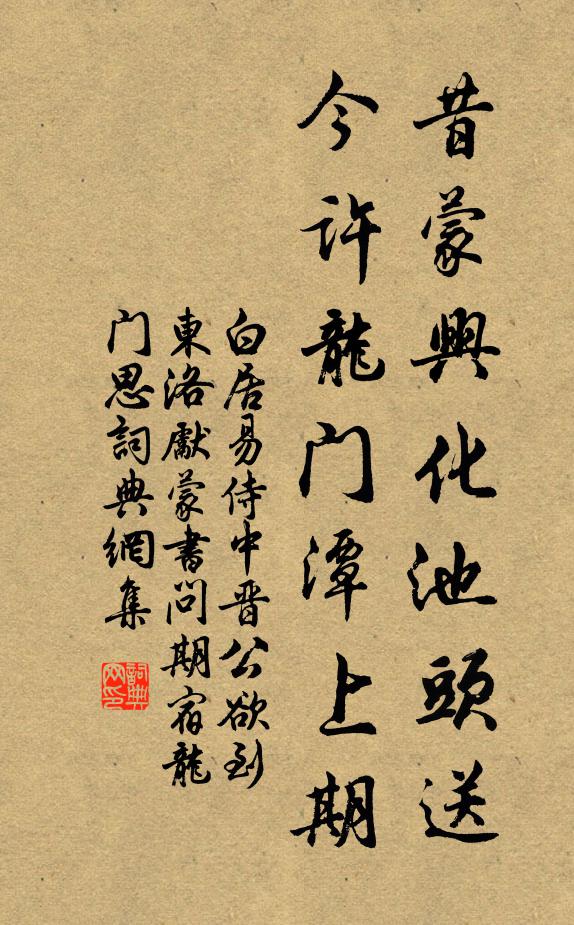 昔蒙興化池頭送
今許龍门潭上期
白居易侍中晋公欲到
東洛獻蒙書问期宿龍
门思詞典網集
詞典网印